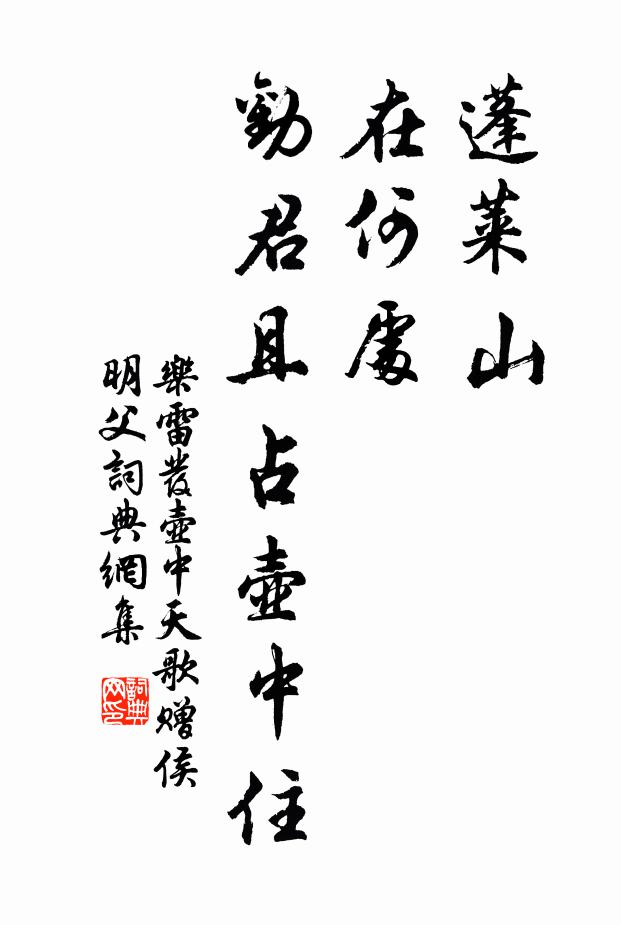 蓬萊山
在何處
勸君且占壺中住
樂雷發壺中天歌贈侯
明父詞典網集
詞典网印